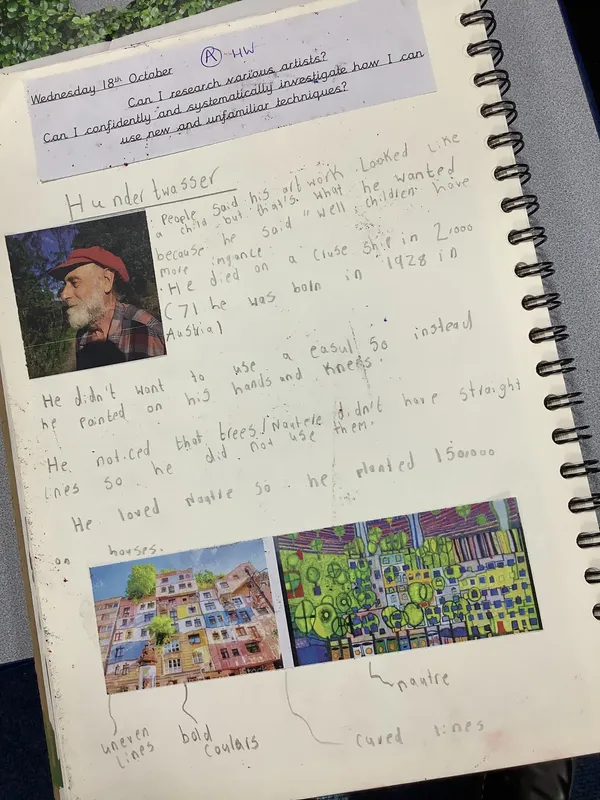 Wednesday 18th October
A HW
Can I research various artists?
Can I confidently and systematically investigate how I can
use new and unfamiliar techniques?
Hundertwasser
· People said his art work Looked Like
a child but that's what he wanted
because he said "well children have
more imgance
· He died on a cruse ship in 2,000
(71 he was boln in 1928 in
Austria)
He didn't wont to use a easul so instead
he painted on his hands and knees.
He noticed that trees/Nautere didn't have straight
lines so he did not use them.
He loved nautre so he planted 150,000
on houses.
uneven
lines
bold
coulars
curved lines
nautre